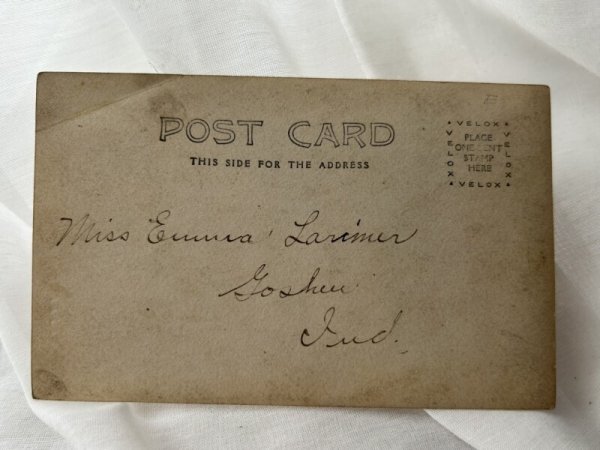 POST CARD
THIS SIDE FOR THE ADDRESS
VELOX
VELOX
PLACE
ONE CENT
STAMP
HERE
VELOX
VELOX
Miss Emma Larimer
Goshen
Ind.